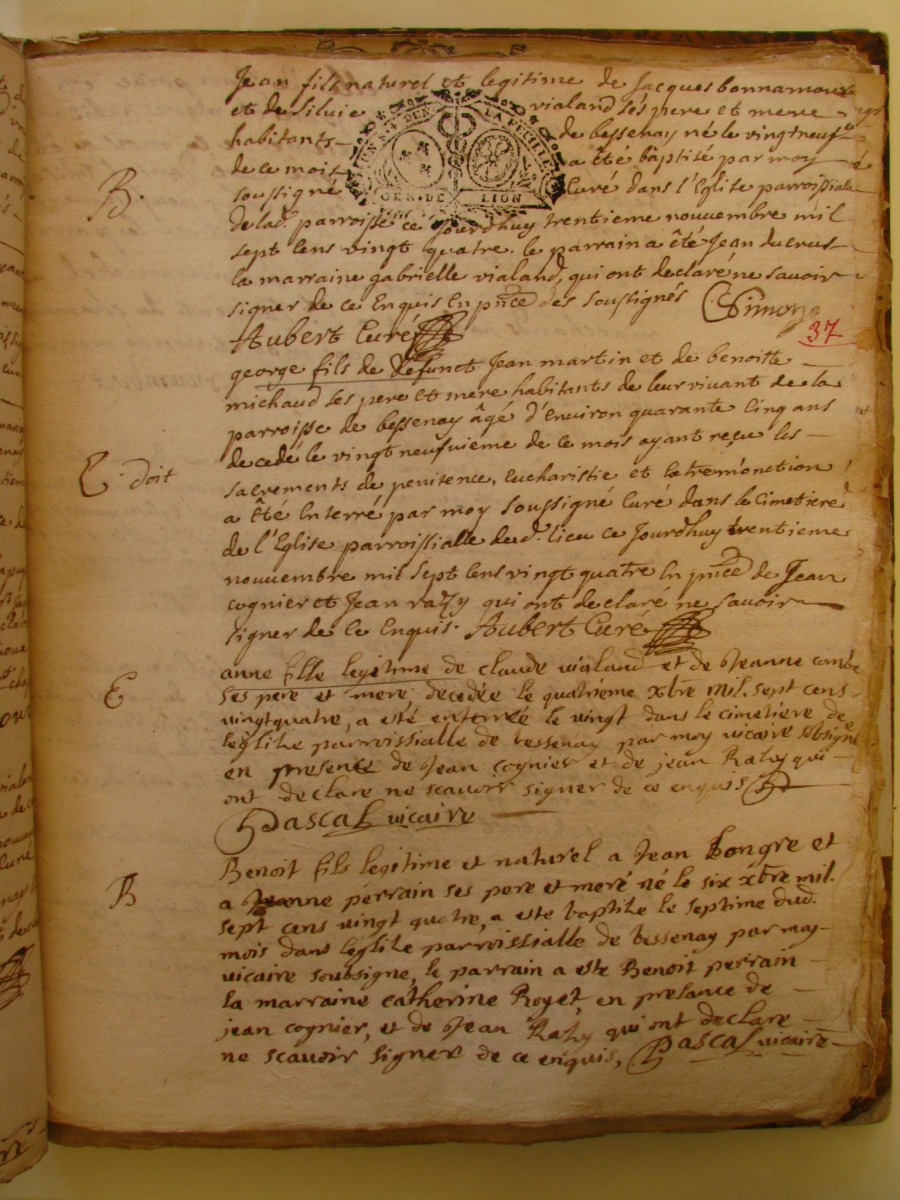 Jean fils naturel et legitime de Jacques bonnamour
et de Silvie vialand ses pere et mere
habitants de bessenay né le vingtneuf
de ce mois a êté baptisé par moy
B. soussigné Curé dans l'Eglise parroissialle
GEN. DE LION
delad. parroisse ce jourdhuy trentieme nouuembre mil
sept Cens vingt quatre. le parrain a êté Jean ducrust
la marraine gabrielle vialand, qui ont declaré ne savoir
signer de ce Enquis En pñce des soussignés Simon
Aubert Curé
37
george fils de defunct Jean martin et de benoitte
michaud ses pere et mere habitants de leur vivant de la
parroisse de bessenay âgé d'Environ quarante Cinq ans
decedé le vingt neufuieme de ce mois ayant reçu les
E. doit
sacrements de penitence, Eucharistie et Extremonction
a êté Enterré par moy soussigné Curé dans le Cimetiere
de l'Eglise parroissialle dud. lieu ce Jourdhuy trentieme
nouuembre mil sept Cens vingt quatre En pñce de Jean
cognier et Jean razy qui ont declaré ne savoir
signer de ce Enquis. Aubert Curé
anne fille legitime de claude vialand et de Jeanne combe
E ses pere et mere decedée le quatrieme xbre mil. sept cens
vingtquatre, a esté enterrée le vingt dans le cimetiere de
leglise parroissialle de bessenay par moy vicaire sobsigne
en presence de Jean cognier et de jean Razy qui
ont declare ne scauoir signer de ce enquis
Pascal vicaire
Benoit fils legitime et naturel a Jean Longre et
B a Jeanne perrain ses pere et meré né le six xbre mil.
sept cens vingt quatre, a este baptise le septime dud.
mois dans leglise parroissialle de bessenay par moy
vicaire soubsigne, le parrain a este Benoit perrain
la marraine catherine Royet, en presance de
jean cognier, et de Jean Razy qui ont declare
ne scauoir signer de ce enquis, Pascal vicaire